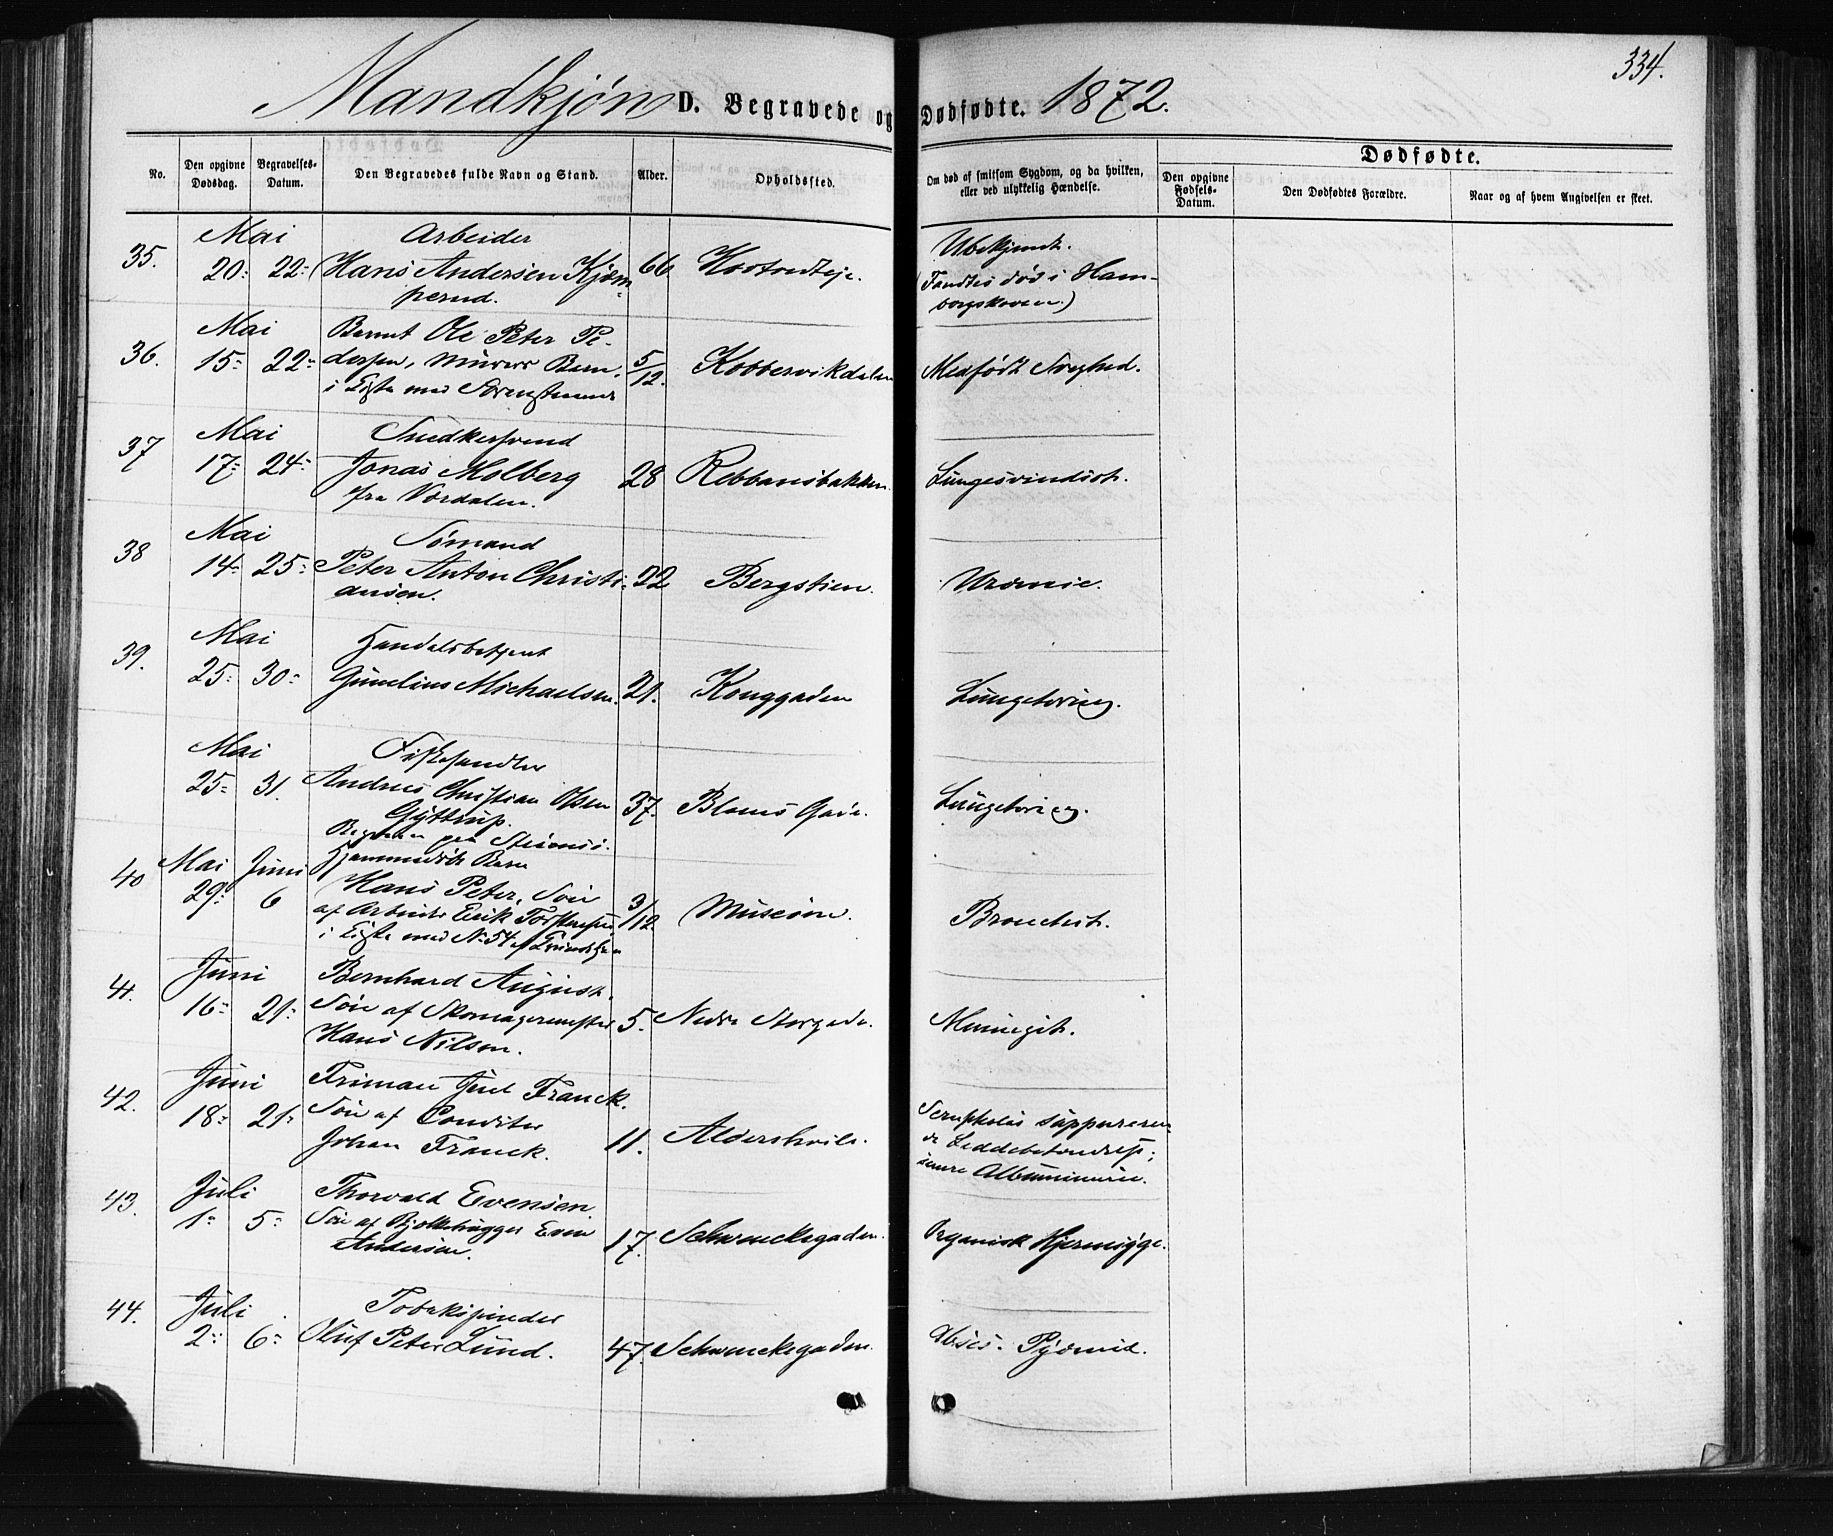 334.
Mandkjøn D. Begravede og Dødfødte. 1872.
No.
Den opgivne Dødsdag.
Begravelses-Datum.
Den Begravedes fulde Navn og Stand.
Alder.
Opholdssted.
Om død af smitsom Sygdom, og da hvilken, eller ved ulykkelig Hændelse.
Dødfødte.
Den opgivne Fødsels-Datum.
Den Dødfødtes Forældre.
Naar og af hvem Angivelsen er skeet.
Mai Arbeider Ubekjendt.
35. 20 22 Hans Andersen Kjem- 66
perud. Fandtes død i Ham-
borgskoven.)
Mai Bernt Ole Peter Pe-
36. 15 22 dersen, Murers Barn, 5/12. Kobbervikdalen Medfødt Svaghed.
i Kiste med
Mai Snedkersvend
37 17 24 Jonas Molberg 28 Rebbansbakken. Lungesvindsot.
fra Vordalen.
Mai Sømand
38 14 25 Peter Anton Christi- 22 Bergstien. Uræmie.
ansen.
Mai Handelsbetjent
39. 25 30 Gunelius Michaelsen. 21. Konggaden Lungetæring.
Mai
25 31. Andreas Christian Olsen 37. Bloms Gade. Lungetæring.
Gyttrup.
Begraven paa
Mai Juni Hjemmedøbt Barn
40 29 6 Hans Peter, Søn 3/12 Museum. Bronchit.
af Arbeider Erik
i Kiste med No 54 af
Juni Bernhard August.
41. 16 21 Søn af Skomagermester 5. Nedre Storgade. Meningit.
Hans Nilsen.
Juni Friman Juel Franck.
42. 18 21 Søn af Conditor
Johan Franck. 11. Aldershvile.
Leddebetændelse;
senere Albuminurie.
Juli Thorvald Evensen.
43. 1 5 Søn af Bjelkehugger Even 17. Schwenckegaden. Organisk Hjertesyge.
Andersen.
Juli Tobakspinder
44. 2 6 Oluf Peter Lund. 47. Schwenckegaden. Absces. Pyæmie.